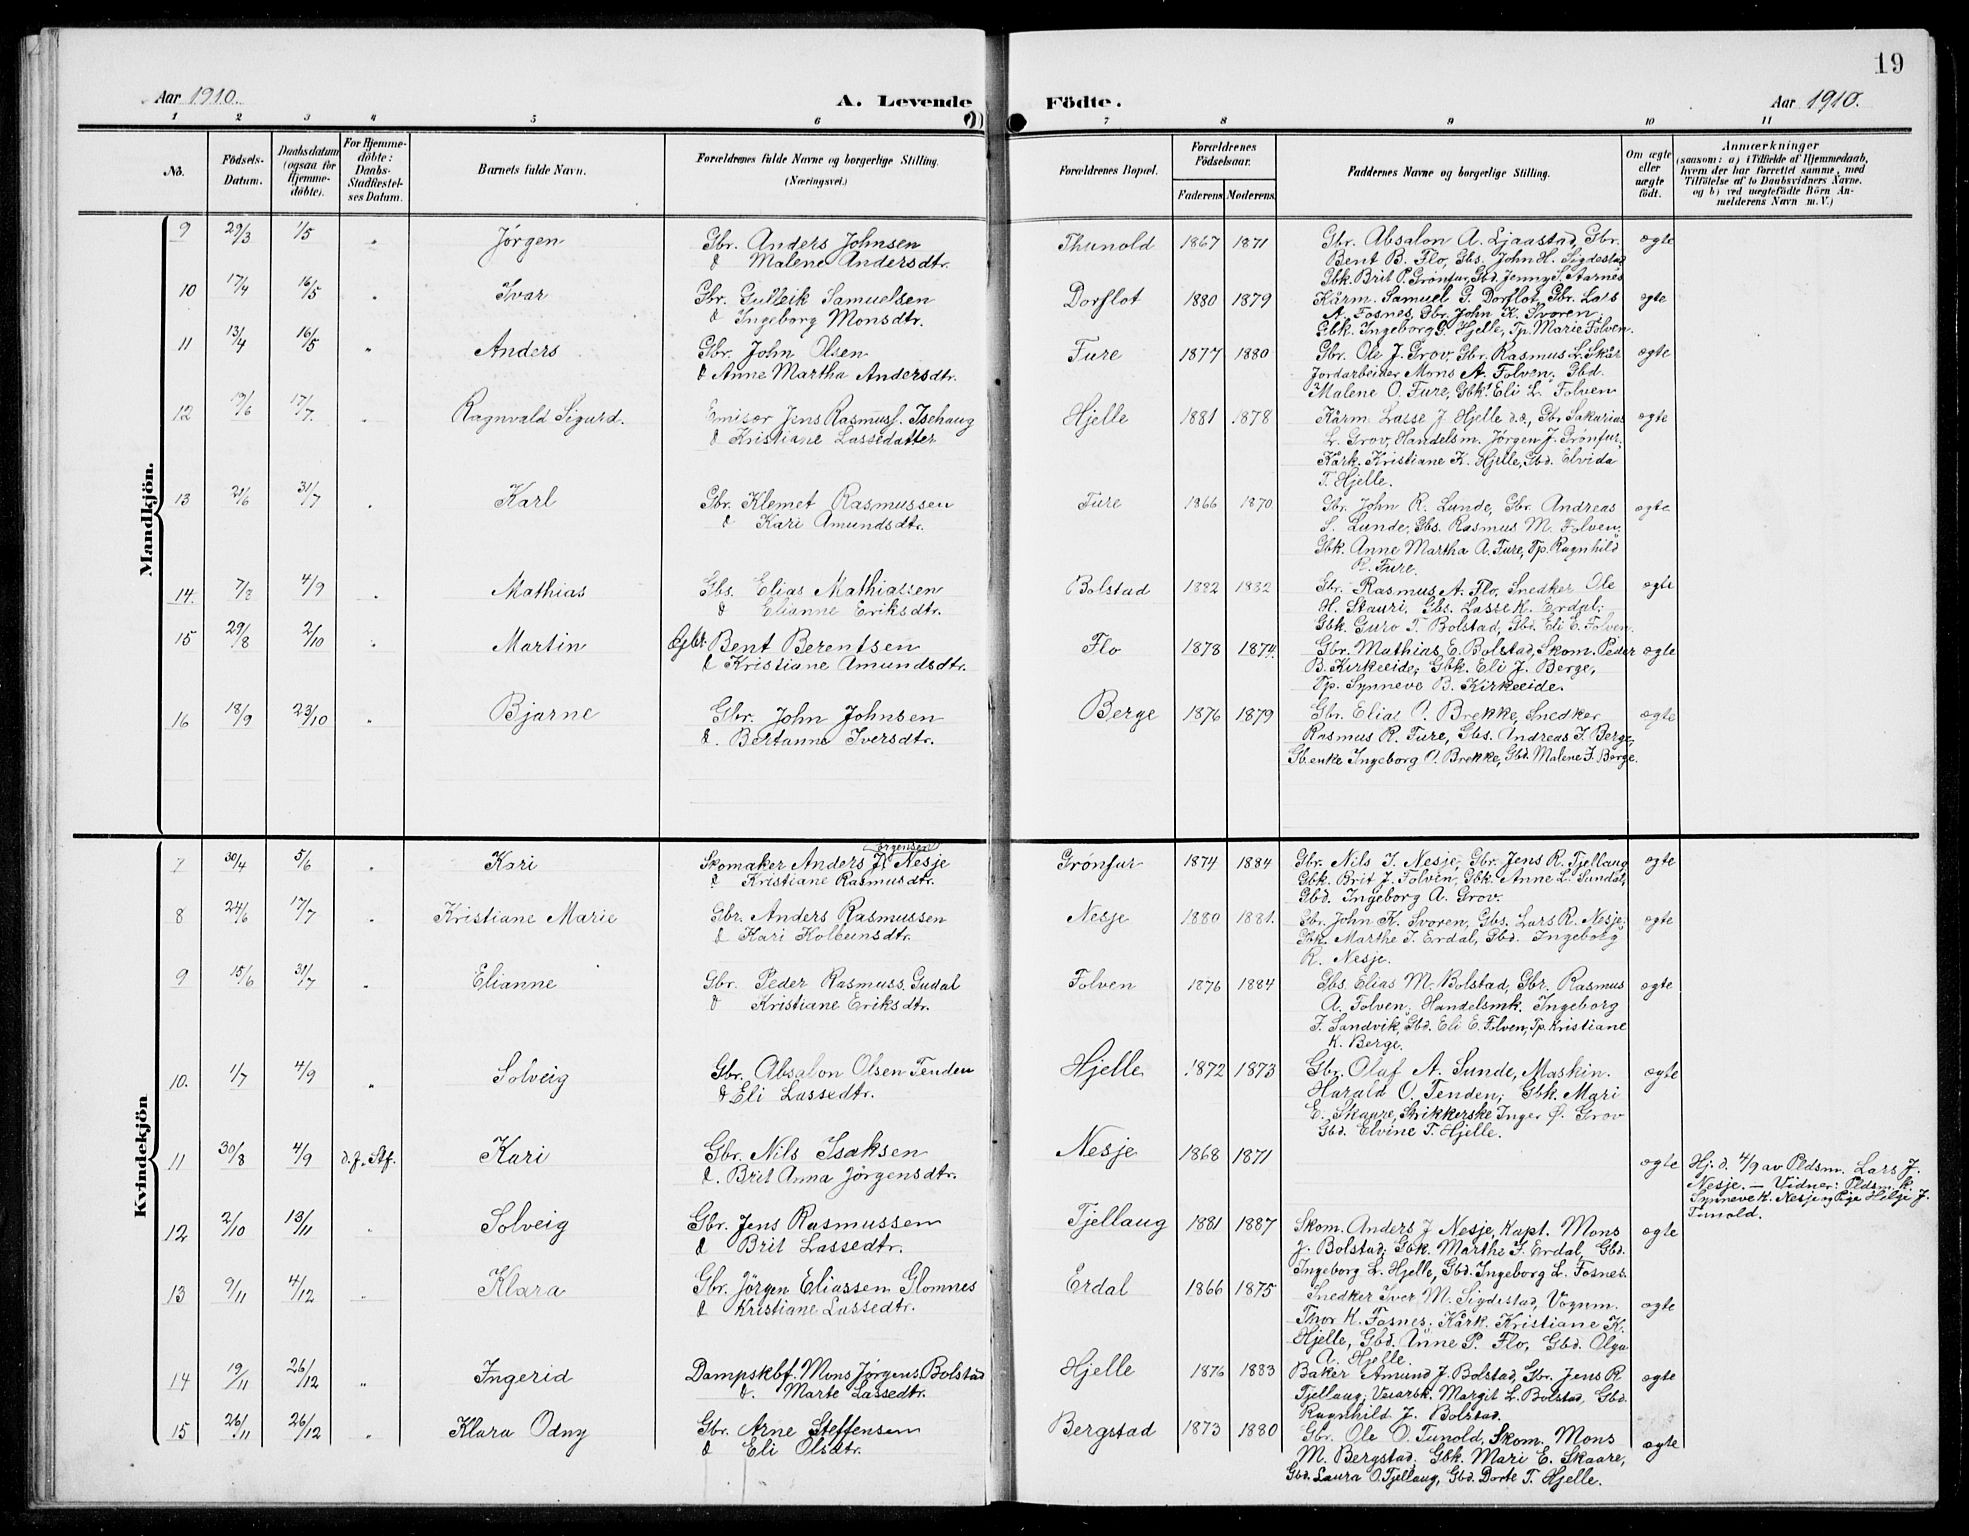 19
Aar 1910.
A. Levende Födte.
Aar 1910.
1 2 3 4 5 6 7 8 9 10 11
No.
Födsels-Datum.
Daabsdatum (ogsaa for Hjemmedöbte).
For Hjemmedöbte: Daabs-Stadfæstelses Datum.
Barnets fulde Navn.
Forældrenes fulde Navne og borgerlige Stilling. (Næringsvei.)
Forældrenes Bopæl.
Forældrenes Födselsaar.
Faderens. Moderens.
Faddernes Navne og borgerlige Stilling.
Om ægte eller uægte födt.
Anmærkninger (saasom: a) i Tilfælde af Hjemmedaab, hvem der har forrettet samme, med Tilföielse af to Daabsvidners Navne, og b) ved uægtefödte Börn Anmelderens Navn m. V.)
Mandkjön.
9 29/3 1/5 " Jörgen Gbr. Anders Johnsen Thunold 1867 1871 Gbr. Absalon A. Ljaastad, Gbr. ægte
& Malene Andersdtr. Bent B. Flo, Gbs. John H. Sigdestad
Gbk. Brit P. Grönfur, Gbd. Jenny S. Starnes
10 17/4 16/5 " Ivar Gbr. Gulleik Samuelsen Dorflot 1880 1879 Kårm. Samuel G. Dorflot, Gbr. Lars ægte
& Ingeborg Monsdtr. A. Fosnes, Gbr. John K. Svoren,
Gbk. Ingeborg G. Hjelle, Tp. Marie Folven.
11 13/4 16/5 " Anders Gbr. John Olsen Fure 1877 1880 Gbr. Ole J. Grov, Gbr. Rasmus L. Skår ægte
& Anne Martha Andersdtr. Jordarbeider Mons A. Folven, Gbd.
Malene O. Fure, Gbk. Eli L. Folven
12 19/6 17/7. " Ragnvald Sigurd. Emisær Jens Rasmuss. Isehaug Hjelle 1881 1878 Kårm. Lasse J. Hjelle d.æ., Gbr. Sakarias ægte
& Kristiane Lassedatter L. Grov, Handelsm. Jörgen J. Grönfur,
Kårk. Kristiane K. Hjelle, Gbd. Elvida
T. Hjelle.
13 21/6 31/7 " Karl Gbr. Klemet Rasmussen Fure 1866 1870 Gbr. John R. Lunde, Gbr. Andreas ægte
& Kari Amundsdtr. S. Lunde, Gbs. Rasmus M. Folven,
Gbk. Anne Martha A. Fure, Tp. Ragnhild
R. Fure.
14. 7/7 4/9 " Mathias Gbs. Elias Mathiassen Bolstad 1882 1882 Gbr. Rasmus A. Flo, Snedker Ole ægte
& Elianne Eriksdtr. H. Stauri, Gbs. Lasse K. Erdal;
Gbk. Guro T. Bolstad, Gbd. Eli E. Folven.
15 29/8 2/10 " Martin Gbr. Bent Berentsen Flo 1878 1874. Gbr. Mathias E. Bolstad, Skom. Peder ægte
& Kristiane Amundsdtr. B. Kirkeeide, Gbk. Eli J. Berge,
Tp. Synneve B. Kirkeeide.
16 18/9 23/10 " Bjarne Gbr. John Johnsen Berge 1876 1879 Gbr. Elias O. Brekke, Snedker ægte
&. Bertanne Iversdtr. Rasmus R. Fure, Gbs. Andreas J. Berge,
Gb.enke Ingeborg O. Brekke, Gbd. Malene J. Berge.
Kvindekjön
7 30/4 5/6 " Kari Skomaker Anders Jörgensen Nesje Grönfur 1874 1884 Gbr. Nils I. Nesje, Gbr. Jens R. Tjellaug ægte
& Kristiane Rasmusdtr. Gbk. Brit J. Folven, Gbk. Anne L. Sundal,
Gbd. Ingeborg A. Grov.
8 24/6 17/7 " Kristiane Marie Gbr. Anders Rasmussen Nesje 1880 1881. Gbr. John K. Svoren, Gbs. Lars R. Nesje; ægte
& Kari Kolbeinsdtr. Gbk. Marthe I. Erdal, Gbd. Ingeborg
R. Nesje.
9 15/6 31/7 " Elianne Gbr. Peder Rasmuss. Gudal Folven 1876 1884 Gbs. Elias M. Bolstad, Gbr. Rasmus ægte
& Kristiane Eriksdtr. A. Folven, Handelsmk. Ingeborg
J. Sandvik, Gbd. Eli E. Folven, Tp. Kristiane
K. Berge.
10. 1/7 4/9 " Solveig Gbr. Absalon Olsen Tenden Hjelle 1872 1873 Gbr. Olaf A. Sunde, Maskin. ægte
& Eli Lassedtr. Harald O. Tenden; Gbk. Mari
E. Skaare, Strikkerske Inger Ø. Grov
Gbd. Elvine T. Hjelle.
11 30/8 4/9 d.f. Stf. Kari Gbr. Nils Isaksen Nesje 1868 1871 ægte Hj.d. 4/9 av Pldsm. Lars J.
&. Brit Anna Jörgensdtr. Nesje. — Vidner: Pldsm.k.
Synneve K. Nesje og Pige Helje J.
Tunold.
12 2/10 13/11 " Solveig Gbr. Jens Rasmussen Tjellaug 1881 1887 Skom. Anders J. Nesje, Kapt. Mons ægte
& Brit Lassedtr. J. Bolstad, Gbk. Marthe I. Erdal, Gbd.
Ingeborg L. Hjelle, Gbd. Ingeborg L. Fosnes.
13 9/11 4/12 " Klara Gbr. Jörgen Eliassen Glomnes Erdal 1866 1875 Snedker Iver M. Sigdestad, Vognm. ægte
& Kristiane Lassedtr. Thor K. Fosnes; Kårk. Kristiane K.
Hjelle, Gbd. Anne P. Flo, Gbd. Olga
A. Hjelle.
14 19/11 26/12 " Ingerid Dampskbf. Mons Jörgens. Bolstad Hjelle 1876 1883 Baker Amund J. Bolstad, Gbr. Jens R. ægte
&. Marte Lassedtr. Tjellaug; Margit L. Bolstad, Gbd.
Ragnhild J. Bolstad.
15 26/11 26/12 " Klara Odny Gbr. Arne Steffensen Bergstad 1873 1880 Gbr. Ole O. Tunold, Skom. Mons ægte
& Eli Olsdtr. M. Bergstad; Gbk. Mari E. Skaare,
Gbd. Laura O. Tjellaug, Gbd. Dorte T. Hjelle.